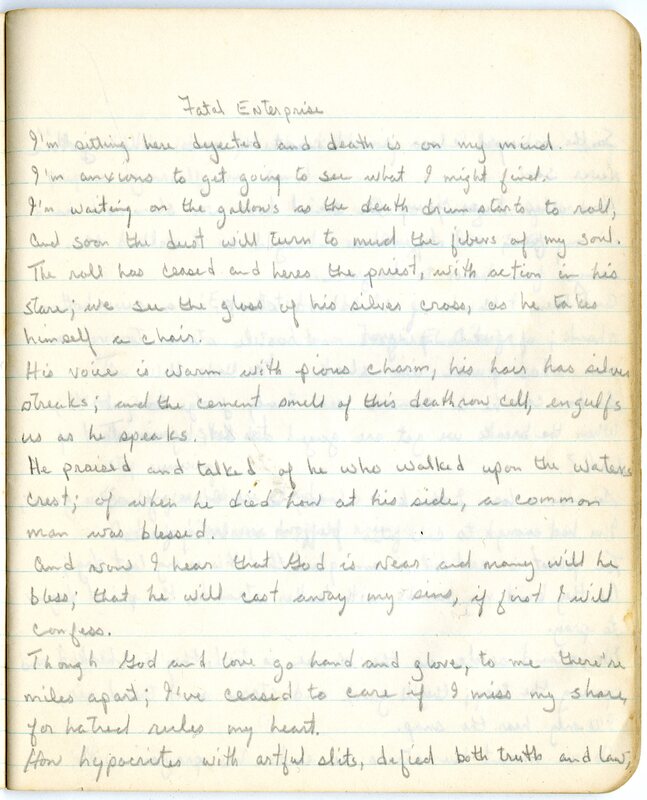 Fatal Enterprise
I'm sitting here dejected and death is on my mind.
I'm anxious to get going to see what I might find.
I'm waiting on the gallows as the death drum starts to roll,
and soon the dust will turn to mud the fibers of my soul.
The roll has ceased and heres the priest, with action in his
stare; we see the gloss of his silver cross, as he takes
himself a chair.
His voice is warm with pious charm, his hair has silver
streaks; and the cement smell of this deathrow cell, engulfs
us as he speaks.
He praised and talked of he who walked upon the waters
crest; of when he died how at his side, a common
man was blessed.
And now I hear that God is near and many will he
bless; that he will cast away my sins, if first I will
confess.
Though God and love go hand and glove, to me there're
miles apart; I've ceased to care if I miss my share,
for hatred rules my heart.
How hypocrites with artful slits, defied both truth and law,